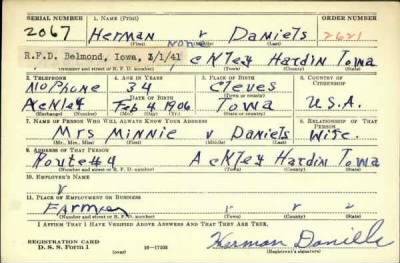 SERIAL NUMBER 1. NAME (Print) ORDER NUMBER
2067 Herman v Daniels 2621
(First) (Middle) (Last)
none
R.F.D. Belmond, Iowa, 3/1/41 Ackley Hardin Iowa
(Number and street or R. F. D. number) (Town) (County) (State)
3. TELEPHONE 4. AGE IN YEARS 5. PLACE OF BIRTH 6. COUNTRY OF CITIZENSHIP
No Phone 34 Cleves
DATE OF BIRTH
Ackley Feb 4 1906 Iowa U.S.A.
7. NAME OF PERSON WHO WILL ALWAYS KNOW YOUR ADDRESS 8. RELATIONSHIP OF THAT PERSON
Mrs Minnie v Daniels Wife
(Mr., Mrs., Miss) (First) (Middle) (Last)
9. ADDRESS OF THAT PERSON
Route #4 Ackley Hardin Iowa
(Number and street or R. F. D. number) (Town) (County) (State)
10. EMPLOYER'S NAME
v
11. PLACE OF EMPLOYMENT OR BUSINESS
Farmer v v
(Number and street or R. F. D. number) (Town) (County) (State)
I AFFIRM THAT I HAVE VERIFIED ABOVE ANSWERS AND THAT THEY ARE TRUE.
REGISTRATION CARD
D. S. S. Form 1 (over) 16—17105 Herman Daniels
(Registrant's signature)